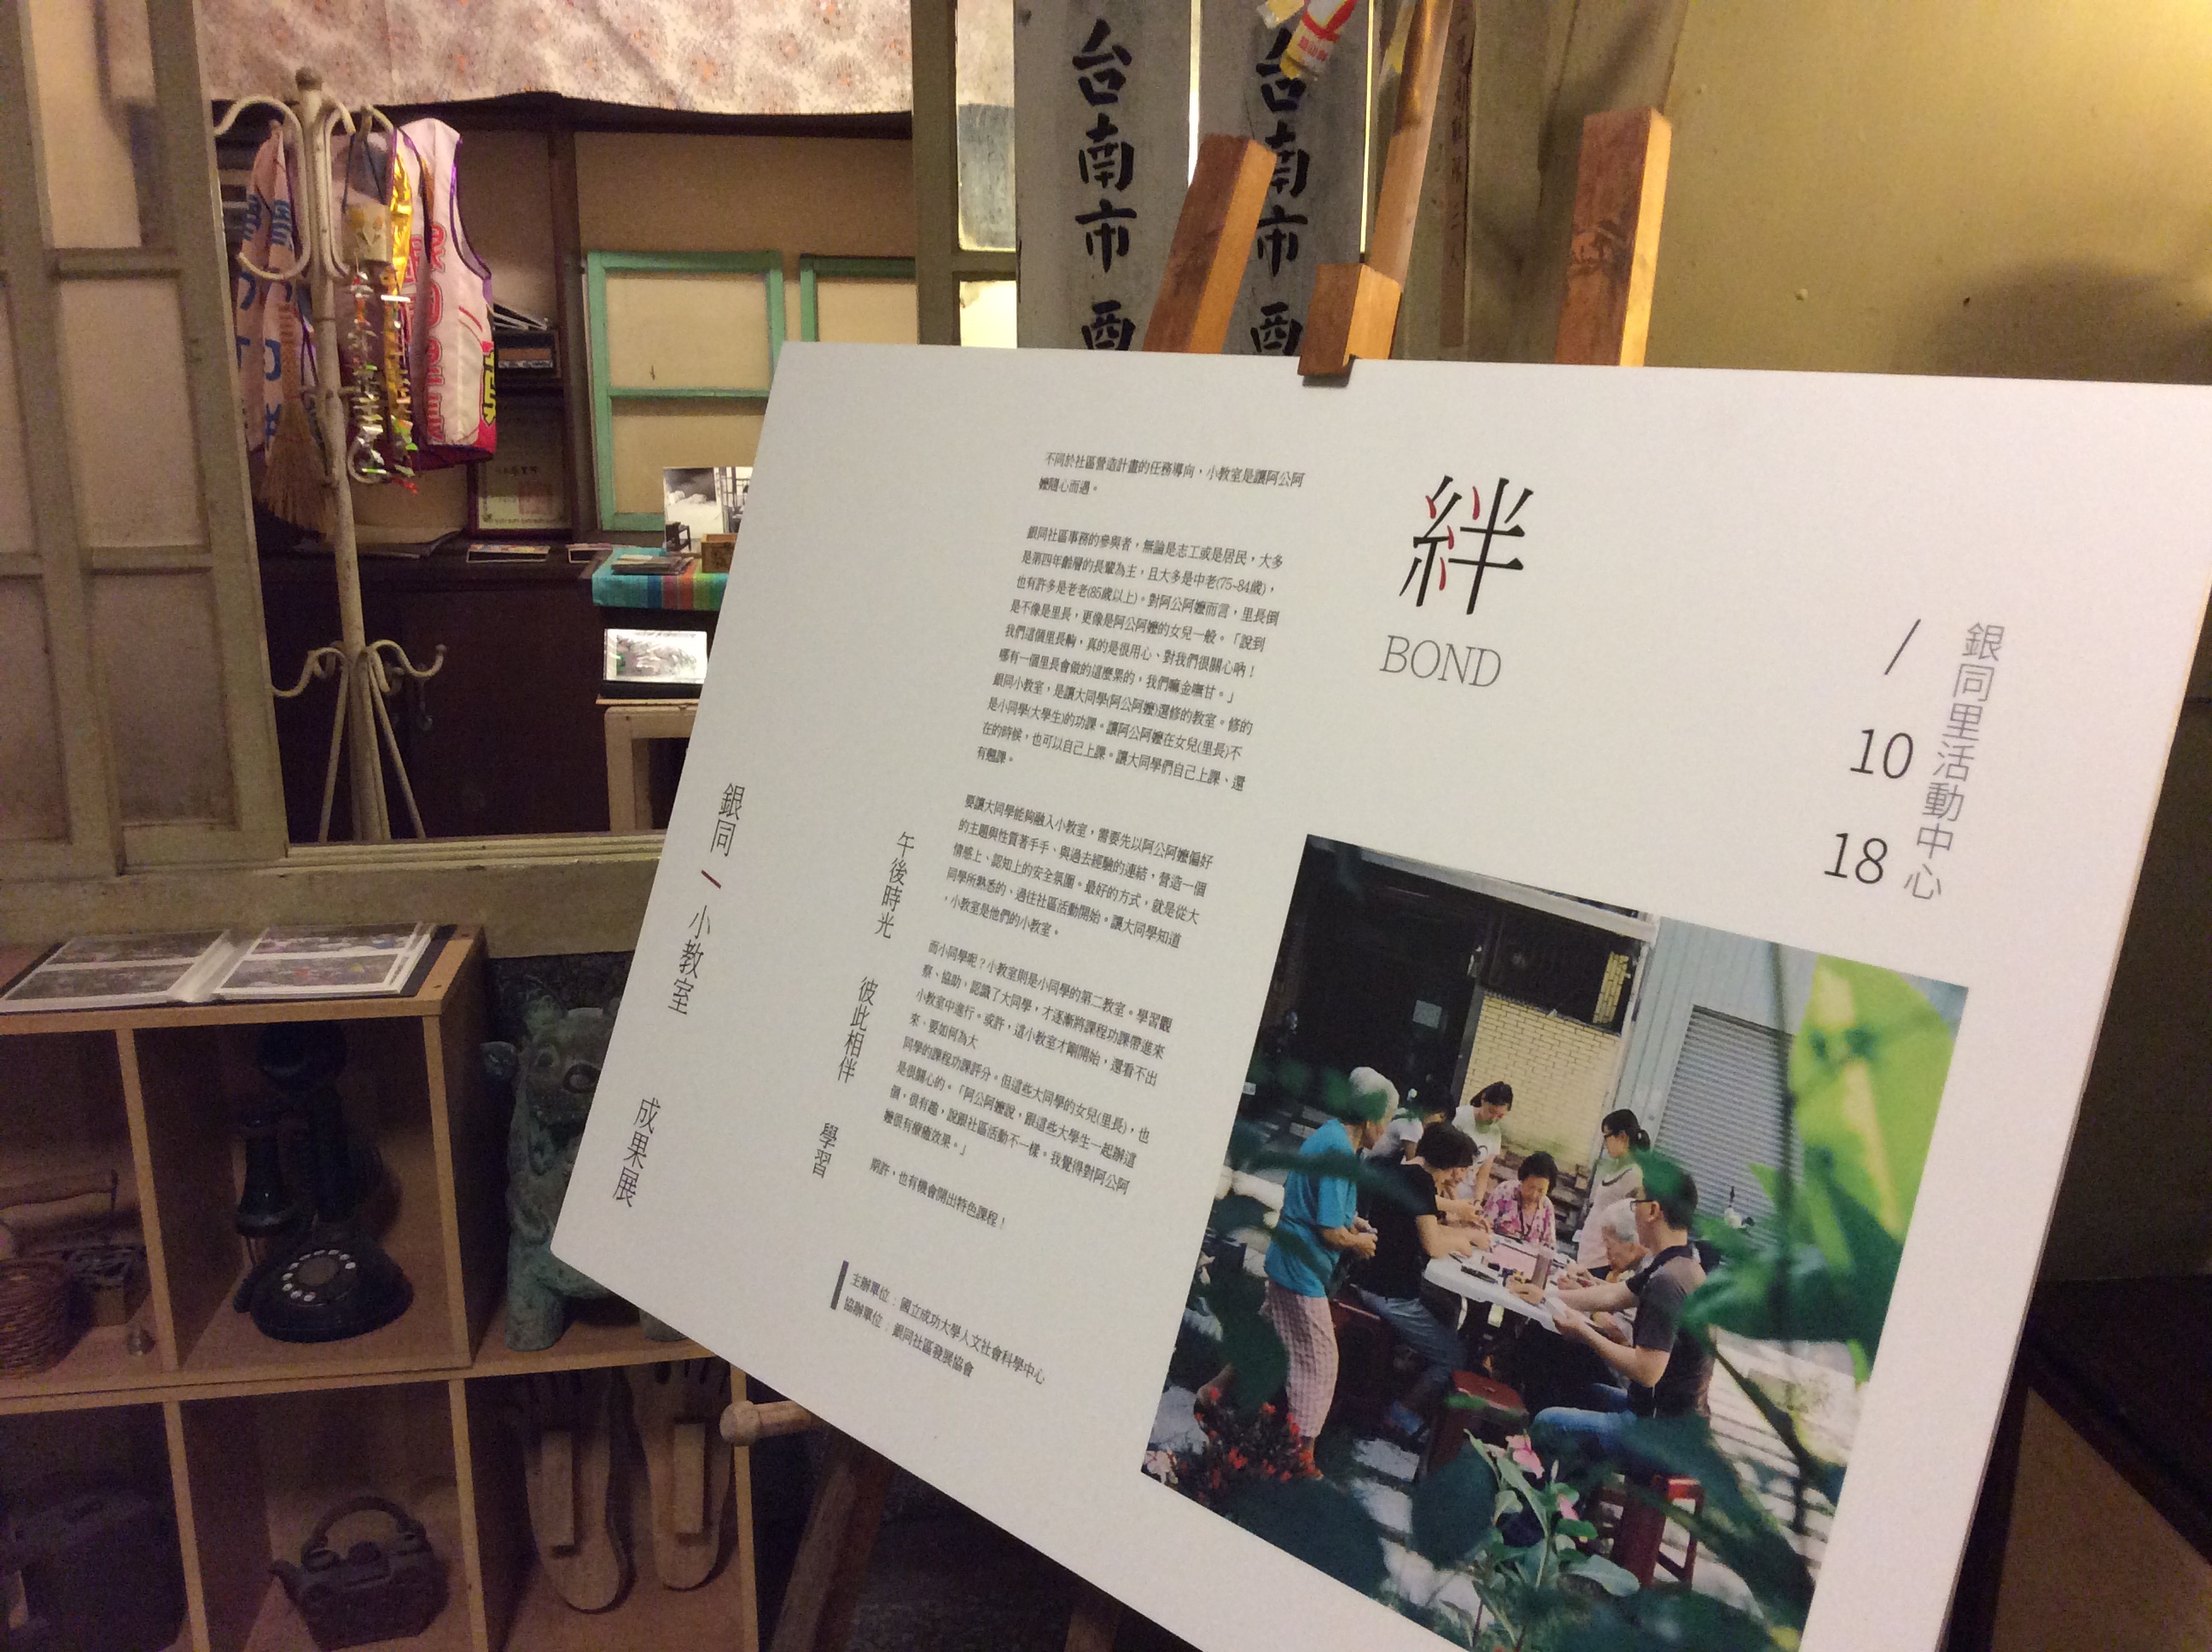 台南市西
台南市西
絆
BOND
銀同里活動中心
/
10
18
不同於社區營造計畫的任務導向,小教室是讓阿公阿
嬤隨心而遇。
銀同社區事務的參與者,無論是志工或是居民,大多
是第四年齡層的長輩為主,且大多是中老(75~84歲),
也有許多是老老(85歲以上)。對阿公阿嬤而言,里長倒
是不像是里長,更像是阿公阿嬤的女兒一般。「說到
我們這個里長齁,真的是很用心、對我們很關心吶!
哪有一個里長會做的這麼累的,我們嘛金嘸甘。」
銀同小教室,是讓大同學(阿公阿嬤)選修的教室。修的
是小同學(大學生)的功課。讓阿公阿嬤在女兒(里長)不
在的時候,也可以自己上課。讓大同學們自己上課、還
有翹課。
要讓大同學能夠融入小教室,需要先以阿公阿嬤偏好
的主題與性質著手手、與過去經驗的連結,營造一個
情感上、認知上的安全氛圍。最好的方式,就是從大
同學所熟悉的、過往社區活動開始。讓大同學知道
,小教室是他們的小教室。
而小同學呢?小教室則是小同學的第二教室。學習觀
察、協助,認識了大同學,才逐漸將課程功課帶進來
小教室中進行。或許,這小教室才剛開始,還看不出
來,要如何為大
同學的課程功課評分。但這些大同學的女兒(里長),也
是很關心的。「阿公阿嬤說,跟這些大學生一起辦這
個,很有趣,說跟社區活動不一樣。我覺得對阿公阿
嬤很有療癒效果。」
期許,也有機會開出特色課程!
午後時光 彼此相伴 學習
銀同 / 小教室 成果展
主辦單位:國立成功大學人文社會科學中心
協辦單位:銀同社區發展協會